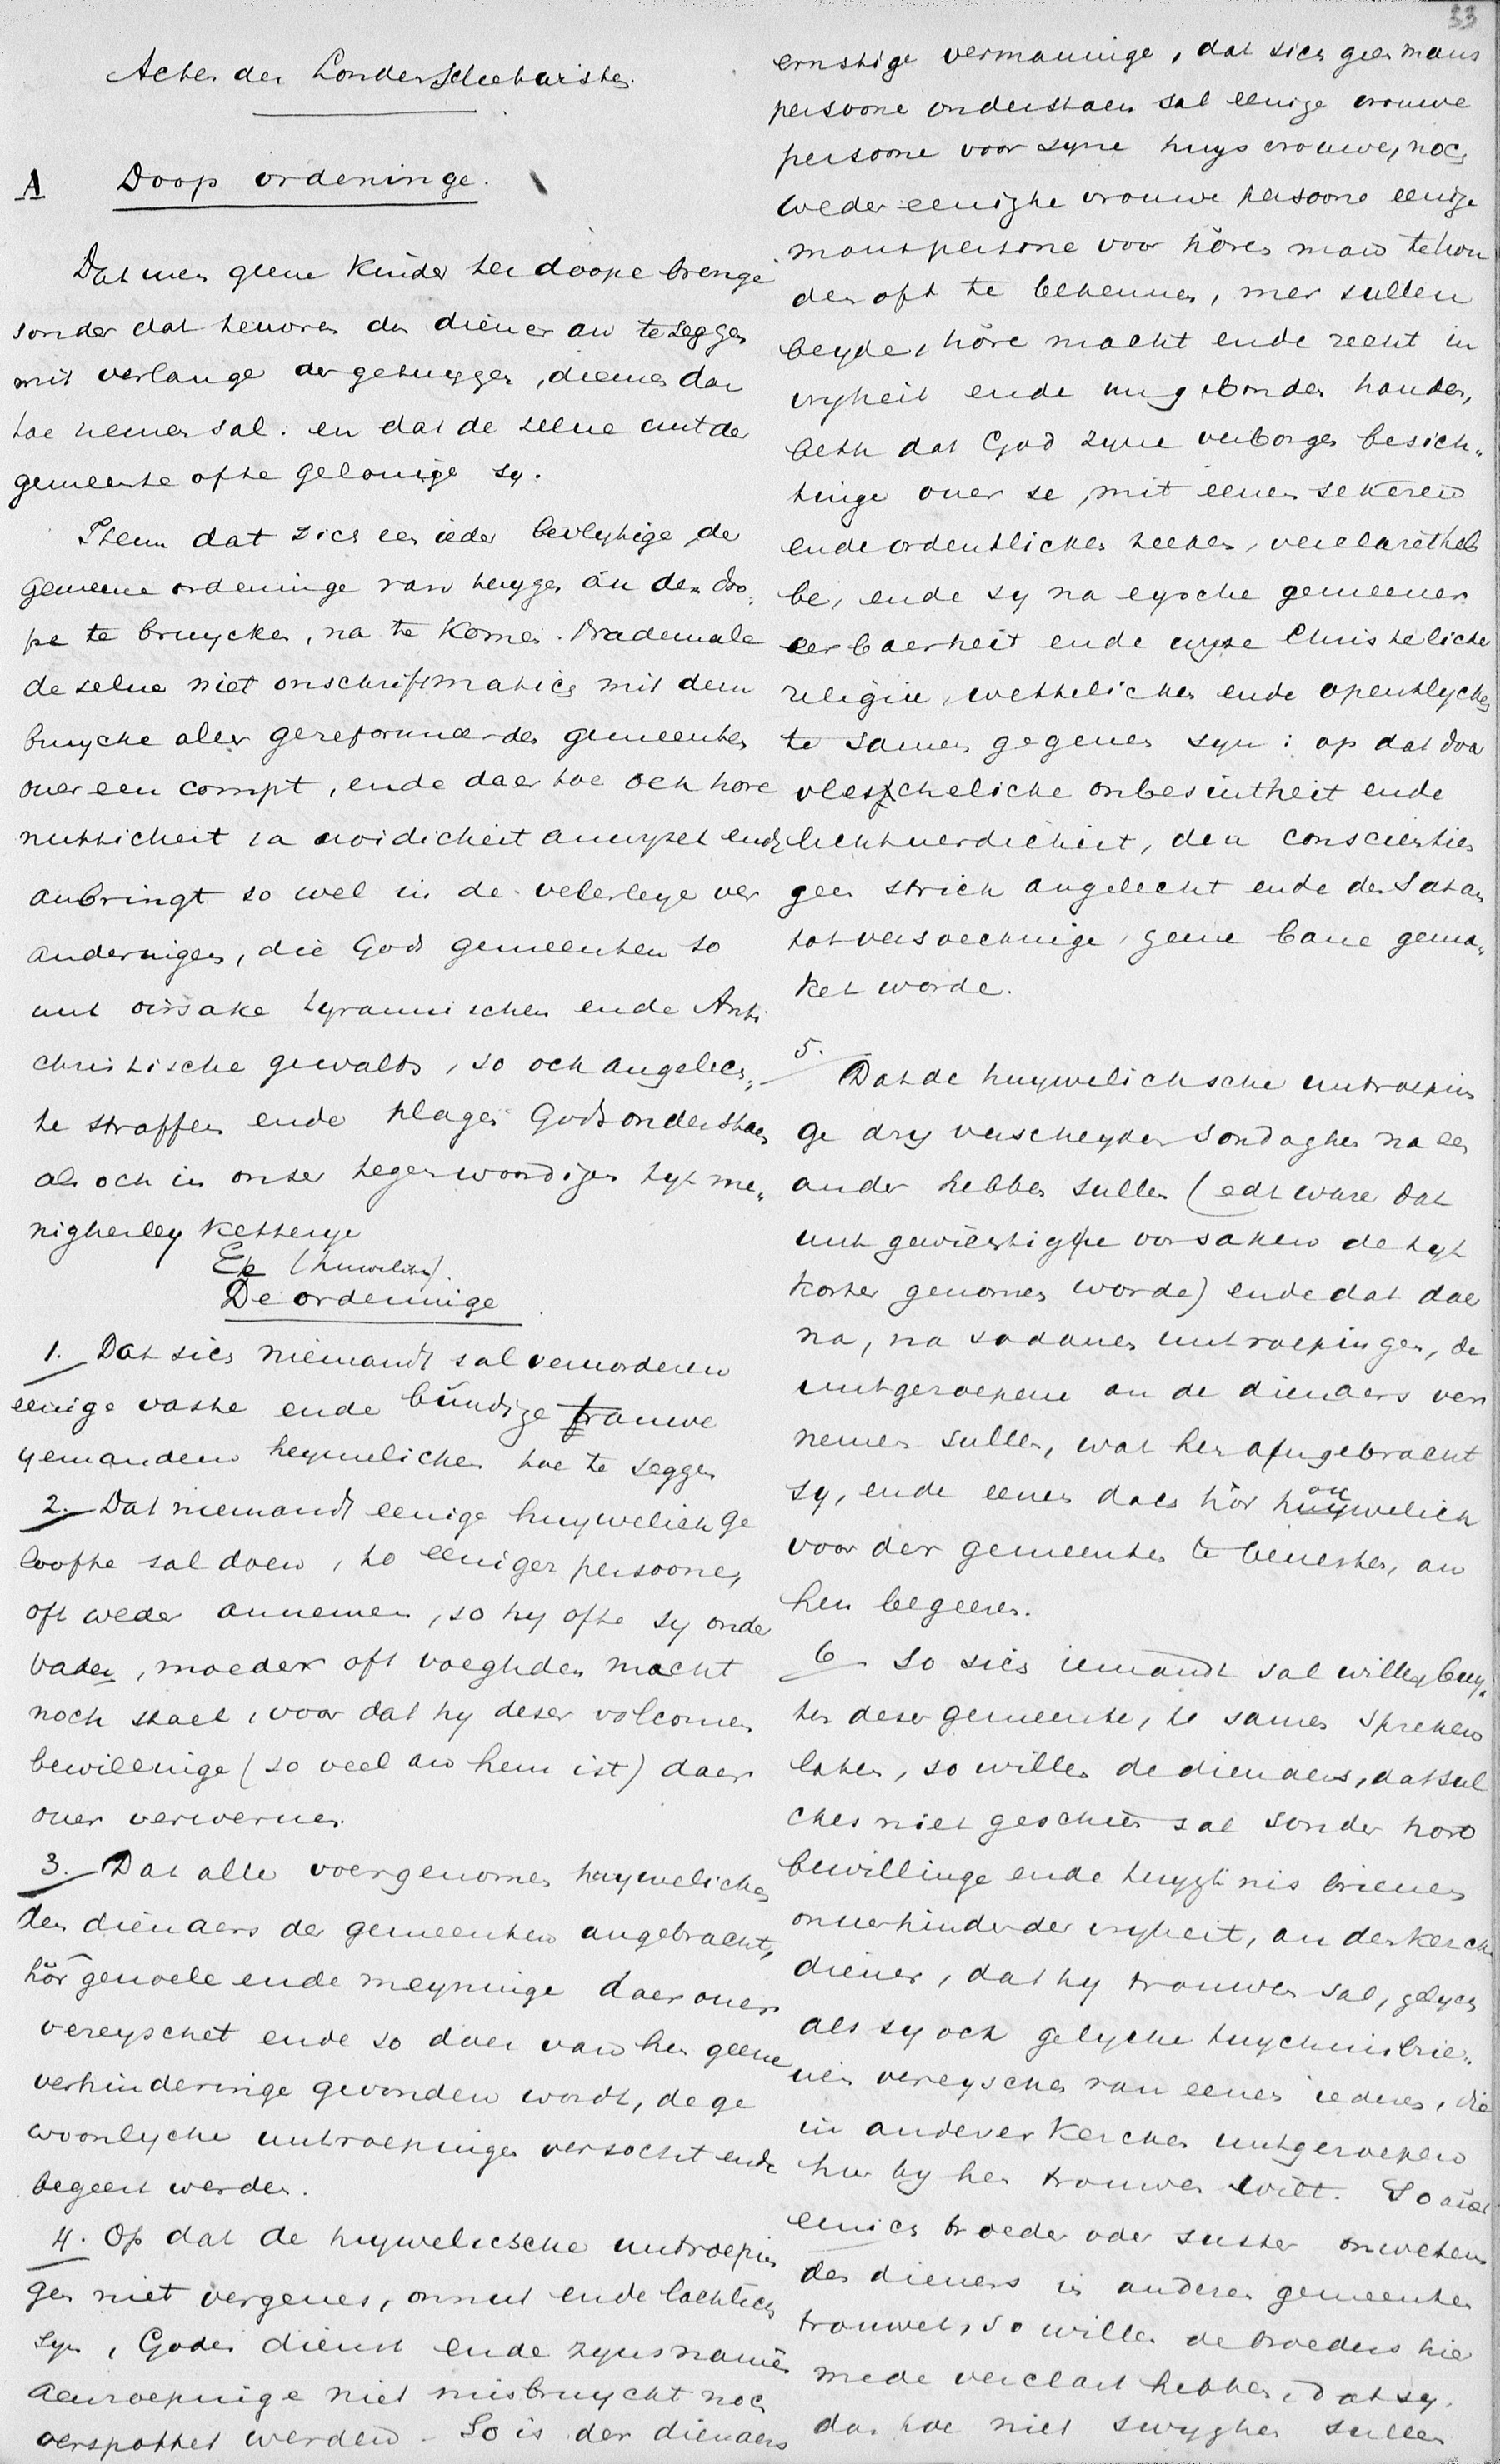 33
Acten der Londersche
A Doop ordeninge.
Dat men geene kinder ten doope brenge
sonder dat tevoren den diener an te seggen
mit verlange der getuygen, diemen dar
toe nemen sal: en dat de selue uut der
gemeente ofte gelouige sy.
Item dat sich een ieder bevlytige, de
gemeene ordeninge van tuygen an den doo„
pe te bruycken, na te komen. Nademale
de selue niet onschriftmatich mit dem
bruycke aler gereformeerden gemeenten
ouer een compt, ende daer toe och hore
nutticheit ia noidicheit anwyset ende
anbringt so wel in de velerleye ver
anderingen, die Gods gemeenten so
uut oirsake tyrannischen ende Anti
christische gewalts, so och angelech„
te straffen ende plagen Gods onderstaen
als och in onser tegenwoordigen tyt me„
nigherley ketterye
Ee (huweliken).
De ordeninge
1. Dat sich niemandt sal veruorderen
eenige vaste ende bündige trouwe
yemanden heymelicken toe te seggen
2. Dat niemandt eenige huywelick ge
loofte sal doen, to eeniger persoone,
oft weder annemen, so hy ofte sy onder
vader, moeder oft voeghden macht
noch staet, voor dat hy deser volcomen
bewillinge (so veel an hem ist) daer
ouer verweruen.
3. Dat alle voergenomen huywelicken
den dienaers der gemeenten angebracht,
hör genoele ende meyninge daer ouer
vereyschet ende so daer van hen geene
verhinderinge gevonden wordt, de ge
woonlyche uutroepingen versocht ende
begeert werden.
4. Op dat de huywelicsche uutroepin
gen niet vergeues, onnut ende lachtlich
syn, Godes dienst ende zyns namēs
aenroepinge niet misbruyckt noch
verspottet werden. So is der dienaers
ernstige vermaninge, dat sich geen mans
persoone onderstaen sal eenige vrouwe
persoone voor syne huysvrouwe, noch
weder eenighe vrouwe persoone eenige
manspersone voor hören man te hou
den oft te bekennen, mer sullen
beyde, höre macht ende recht in
vryheit ende ungebonden houden,
beth dat God zyne verborgen besich„
tinge ouer se, mit eenen sekeren
ende ordentlicken teeken, verclaret heb
be, ende sy na eysche gemeener
eerbaerheit ende wyse Christeliche
religie, wettelicken ende opentlycken
te samen gegeuen syn: op dat door
vleescheliche onbesintheit ende
lichtuerdicheit, den conscientien
geen strick angelecht ende den Satan
tot versoechinge, geene bane gema„
ket worde.
5. Dat de huywelichsche uutroepin
ge dry verscheyden Sondaghen na een
ander hebben sullen (edt ware dat
uut gewichtighe oorsaken de tyt
korter genomen worde) ende dat daer
na, na sodanen uutroepingen, de
uutgeroepene an de dienaers ver
nemen sullen, wat hen angebracht
sy, ende eenen dach hör houwelick
voor der gemeenten te beuesten, an
hen begeeren.
6. So sich iemandt sal willen buy„
ten deser gemeente, te samen spreken
laten, so willen de dienaers, dat sul
ches niet geschien sal sonder hore
bewillinge ende tuygtnis brieuen
onuerhinderder vryheit, an den kerck
diener, dat hy trouwen sal, gelych
als sy och gelycke tuychnisbrie„
uen vereyschen van eenen iederen, die
in anderen kercken uutgeroepen
hier by hen trouwen wilt. So aver
eenich broeder oder suster onwetens
der dieners in anderen gemeenten
trouwet, so willen de broeders hier
mede verclaert hebben, dat sy
dar toe niet swyghen sullen